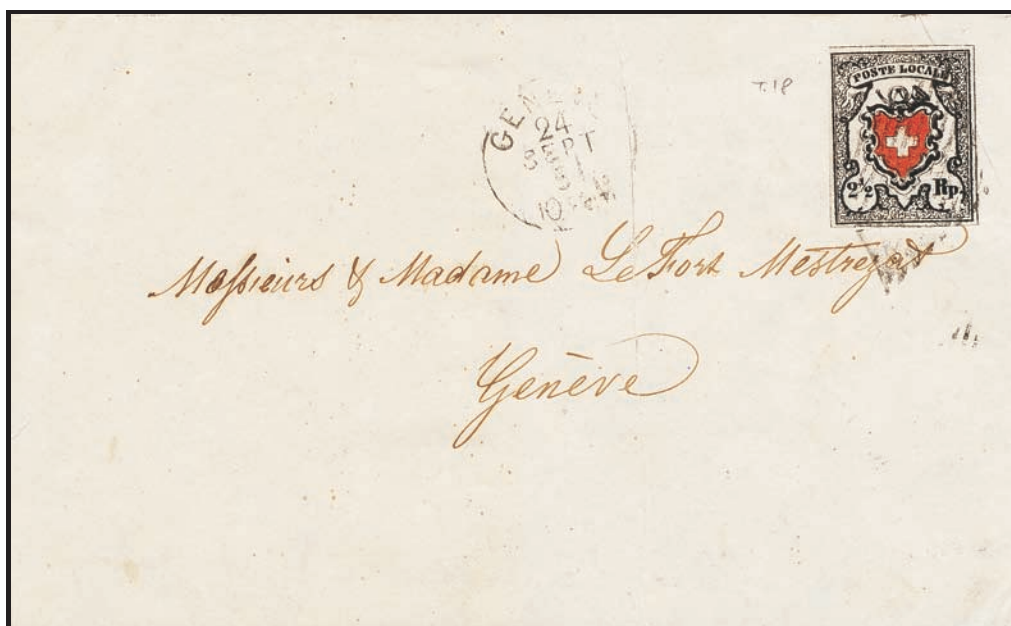 T.18
POSTE LOCALE
2½ Rp.
GENÈVE
24
10
Messieurs & Madame LeFort Mestrezat
Genève